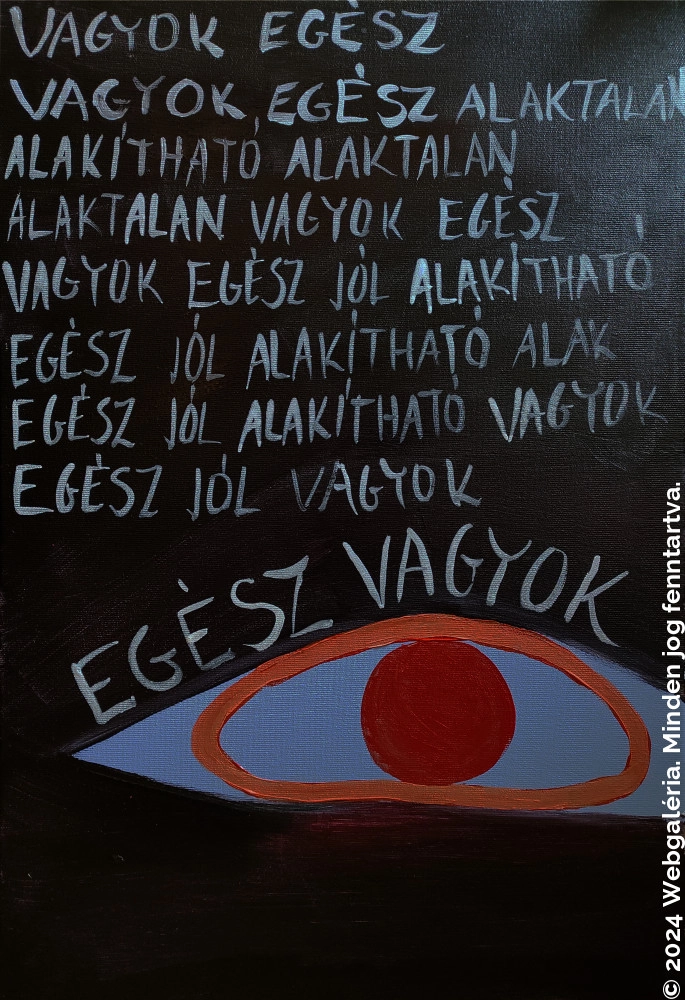 VAGYOK EGÉSZ
VAGYOK, EGÉSZ ALAKTALAN
ALAKÍTHATÓ ALAKTALAN
ALAKTALAN VAGYOK EGÉSZ
VAGYOK EGÉSZ JÓL ALAKÍTHATÓ
EGÉSZ JÓL ALAKÍTHATÓ ALAK
EGÉSZ JÓL ALAKÍTHATÓ VAGYOK
EGÉSZ JÓL VAGYOK
EGÉSZ VAGYOK
© 2024 Webgaléria. Minden jog fenntartva.